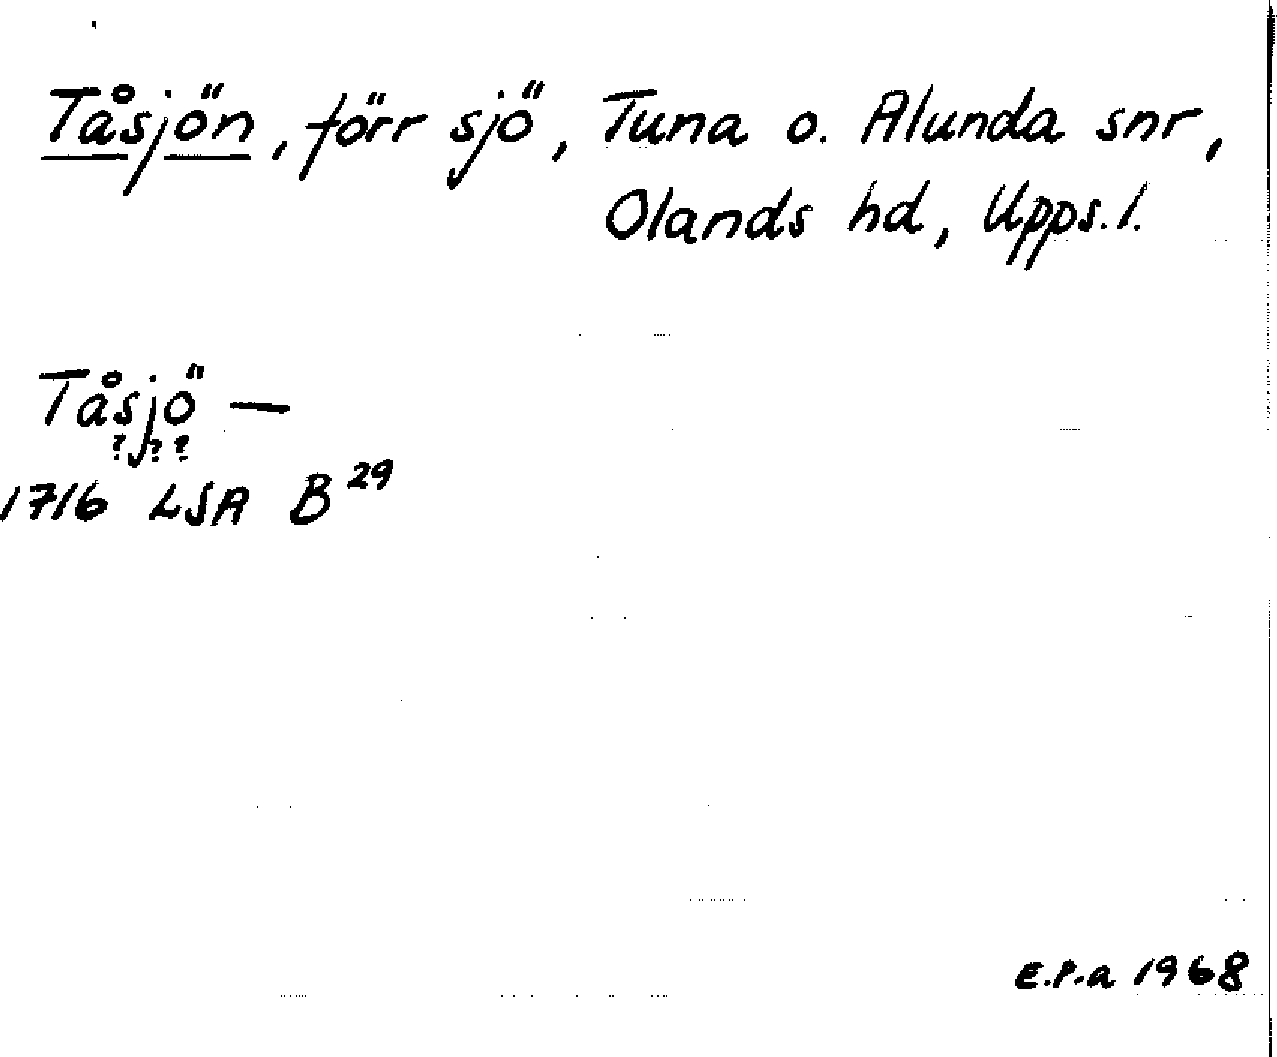 Tåsjön, förr sjö, Tuna o. Alunda snr,
Olands hd, Upps. l.
Tåsjö —
? ? ?
1716 LSA B 29
E.P-a 1968